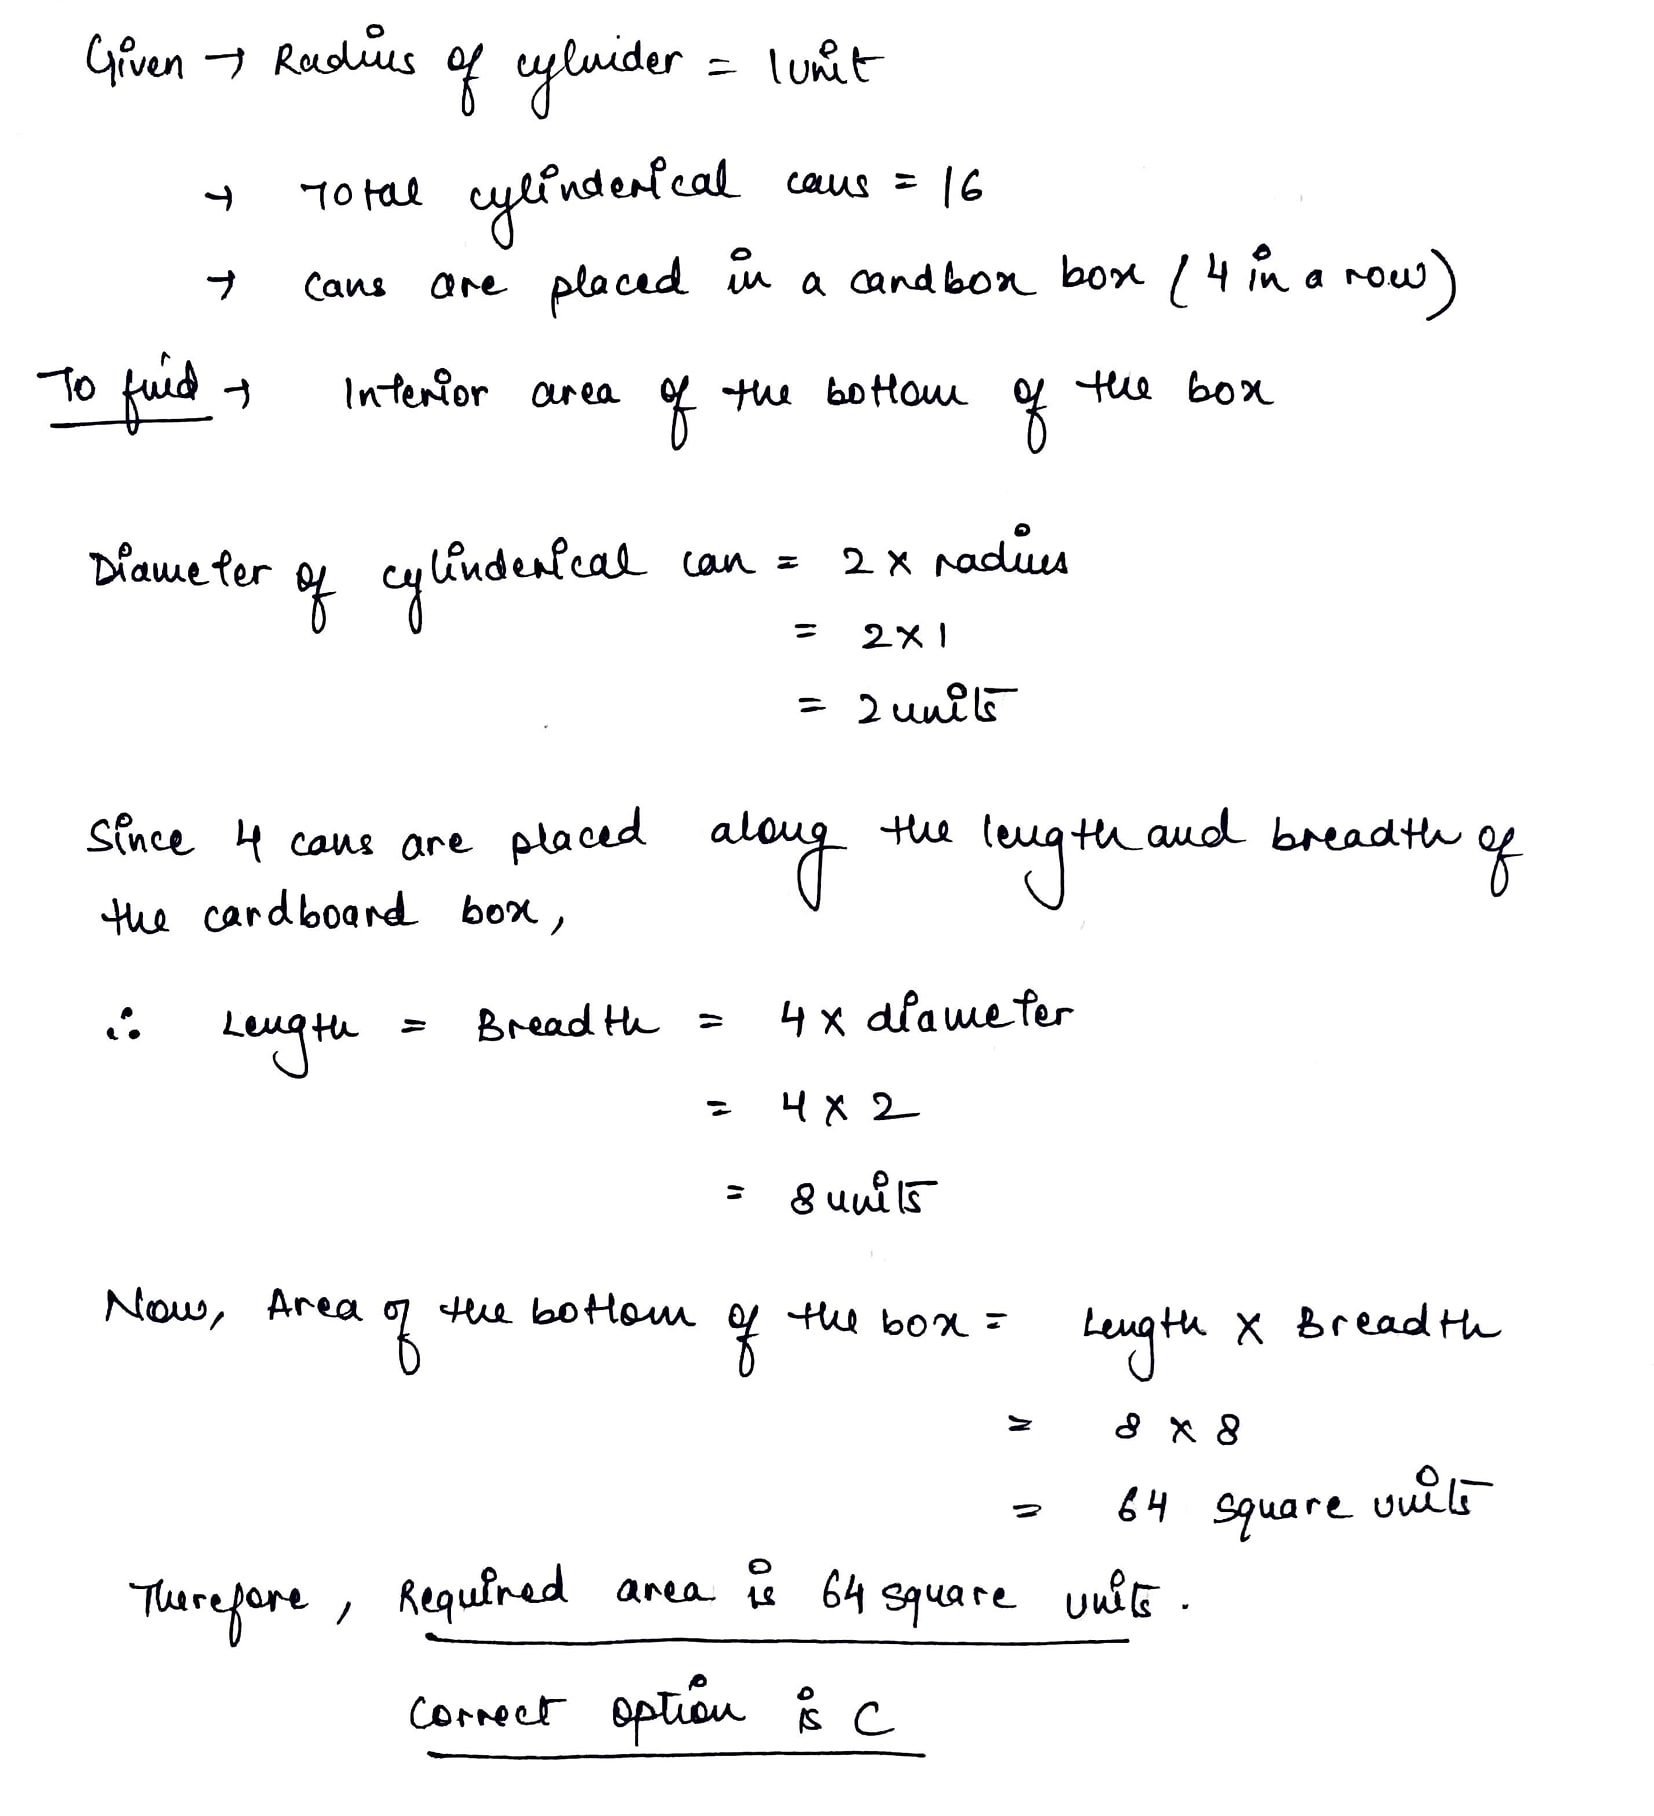 Given → Radius of cylinder = 1 unit
→ Total cylinderical cans = 16
→ Cans are placed in a candbox box (4 in a row)
To find → Interior area of the bottom of the box
Diameter of cylinderical can = 2 × radius
= 2 × 1
= 2 units
Since 4 cans are placed along the length and breadth of
the cardboard box,
∴ Length = Breadth = 4 × diameter
= 4 × 2
= 8 units
Now, Area of the bottom of the box = Length × Breadth
= 8 × 8
= 64 square units
Therefore, Required area is 64 square units.
Correct option is C